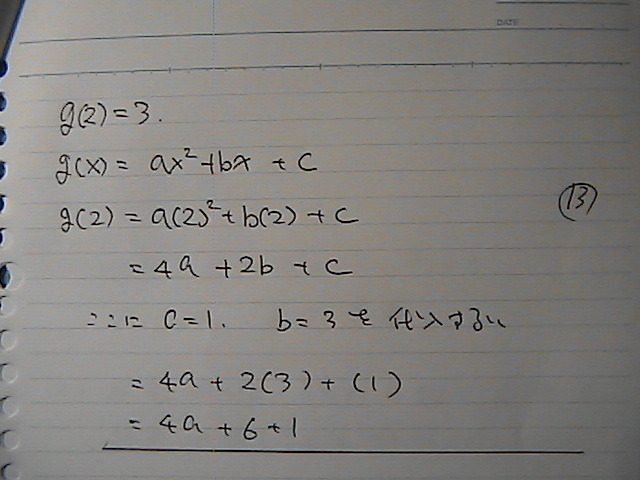 DATE
g(2)=3.
g(x)= ax²+bx +c
g(2)=a(2)²+b(2)+c
⑬
=4a+2b+c
ここに c=1. b=3を代入すると
=4a+2(3)+(1)
=4a+6+1